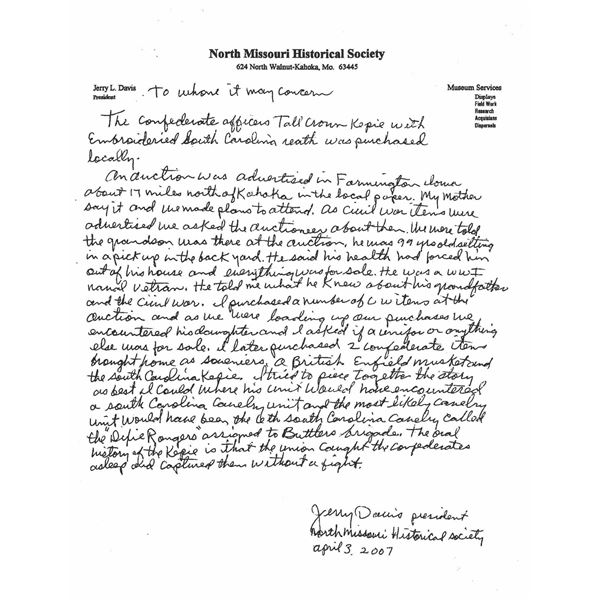 North Missouri Historical Society
624 North Walnut-Kahoka, Mo. 63445
Jerry L. Davis
President
Museum Services
Displays
Field Work
Research
Acquisitions
Dispersals
To whom it may concern
The Confederate officers Tall Crown Kepie with
Embroideried South Carolina reath was purchased
locally.
An auction was advertised in Farmington Iowa
about 17 miles north of Kahoka in the local paper. My mother
say it and we made plans to attend. As Civil War items were
advertised we asked the auctioneer about them. We were told
the grandson was there at the auction, he was 99 yr old setting
in a pick up in the back yard. He said his health had forced him
out of his house and everything was for sale. He was a WWI
naval vetran. He told me what he knew about his grandfather
and the Civil War. I purchased a number of C W items at the
auction and as we were loading up our purchases we
encountered his daughter and I asked if a uniform or anything
else was for sale. I later purchased 2 Confederate items
brought home as souveniers, a British Enfield musket and
the South Carolina Kepie. I tried to piece together the story
as best I could where his unit would have encountered
a South Carolina Cavelry unit and the most likely cavelry
unit would have been the 6th South Carolina Cavelry called
the "Dixie Rangers" assigned to Buttlers brigade. The oral
history of the Kepie is that the union caught the Confederates
asleep and captured them without a fight.
Jerry Davis president
North Missouri Historical Society
april 3, 2007